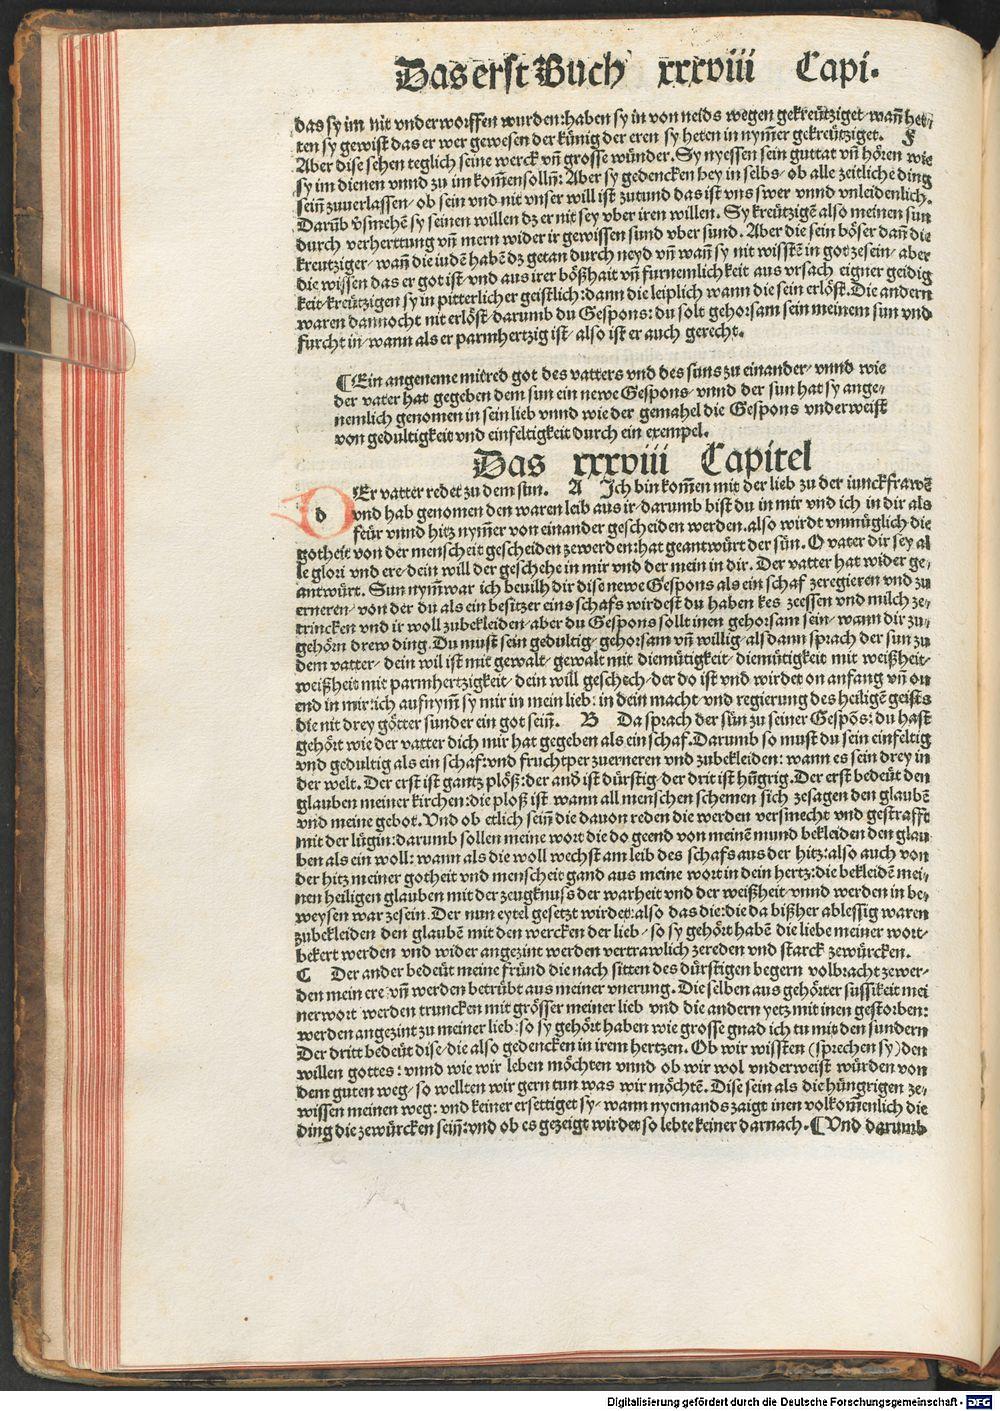 Das erst Buch xxxviii Capi.
das sy im nit vnderworffen wurden: haben sy in von neids wegen gekreütziget/ wañ het/
ten sy gewist das er wer gewesen der künig der eren sy heten in nym̃er gekreütziget.
Aber dise sehen teglich seine werck vñ grosse wünder. Sy nyessen sein guttat vñ hören wie
sy im dienen vnnd zu im kom̃en solln̄: Aber sy gedencken bey in selbs/ ob alle zeitliche ding
sein̄ zuuerlassen/ ob sein vnd nit vnser will ist zutund das ist vns swer vnnd vnleidenlich.
Darūb v̄smehē sy seinen willen dz er nit sey vber iren willen. Sy kreützigē also meinen sun
durch verherttung vñ mern wider ir gewissen sund vber sund. Aber die sein böser dañ die
kreutziger/ wañ die iudē habē dz getan durch neyd vñ wañ sy nit wisstē in got zesein/ aber
die wissen das er got ist/ vnd aus irer bößhait vñ furnemlichkeit aus vrsach eigner geidig
keit/ kreützigen sy in pitterlicher geistlich: dann die leiplich wann die sein erlöst. Die andern
waren dannocht nit erlöst/ darumb du Gespons: du solt gehorsam sein meinem sun vnd
furcht in/ wann als er parmhertzig ist/ also ist er auch gerecht.
¶Ein angeneme mitred got des vatters vnd des suns zu einander/ vnnd wie
der vater hat gegeben dem sun ein newe Gespons/ vnnd der sun hat sy ange/
nemlich genomen in sein lieb vnnd wie der gemahel die Gespons vnderweist
von gedultigkeit vnd einfeltigkeit durch ein exempel.
Das xxxviii Capitel
d Er vatter redet zu dem sun. A Ich bin kom̃en mit der lieb zu der iunckfrawē
vnd hab genomen den waren leib aus ir/ darumb bist du in mir vnd ich in dir als
feür vnnd hitz nym̃er von einander gescheiden werden. also wirdt vnmüglich die
gotheit von der menscheit gescheiden zewerden: hat geantwürt der sün. O vater dir sey al
le glori vnd ere/ dein will der geschehe in mir vnd der mein in dir. Der vatter hat wider ge/
antwürt. Sun nym̃war ich beuilh dir dise newe Gespons als ein schaf zeregieren vnd zu
erneren/ von der du als ein besitzer eins schafs wirdest du haben kes zeessen vnd milch ze/
trincken vnd ir woll zubekleiden/ aber du Gespons sollt inen gehorsam sein/ wann dir zu/
gehörn drew ding. Du must sein gedultig/ gehorsam vñ willig/ als dann sprach der sun zu
dem vatter/ dein wil ist mit gewalt/ gewalt mit diemütigkeit/ diemütigkeit mit weißheit/
weißheit mit parmhertzigkeit/ dein will geschech/ der do ist vnd wirdet on anfang vñ on
end in mir: ich aufnym̃ sy mir in mein lieb: in dein macht vnd regierung des heiligē geists
die nit drey götter sunder ein got sein̄. B Da sprach der sün zu seiner Gespōs: du hast
gehört wie der vatter dich mir hat gegeben als ein schaf. Darumb so must du sein einfeltig
vnd gedultig als ein schaf: vnd fruchtper zuerneren vnd zubekleiden: wann es sein drey in
der welt. Der erst ist gantz plöß: der and ist dürstig/ der drit ist hūgrig. Der erst bedeüt den
glauben meiner kirchen: die ploß ist wann all menschen schemen sich zesagen den glaubē
vnd meine gebot. Vnd ob etlich sein̄ die dauon reden die werden versmecht vnd gestrafft
mit der lügin: darumb sollen meine wort die do geend von meinē mund bekleiden den glau
ben als ein woll: wann als die woll wechst am leib des schafs aus der hitz: also auch von
der hitz meiner gotheit vnd menscheit gand aus meine wort in dein hertz: die bekleidē mei/
nen heiligen glauben mit der zeugknuß der warheit vnd der weißheit/ vnnd werden in be/
weysen war zesein. Der nun eytel gesetzt wirdet: also das die: die da bißher ablessig waren
zubekleiden den glaubē mit den wercken der lieb/ so sy gehört habē die liebe meiner wort/
bekert werden vnd wider angezint werden vertrawlich zereden vnd starck zewürcken.
C Der ander bedeüt meine fründ die nach sitten des dürstigen begern volbracht zewer/
den mein ere/ vñ werden betrübt aus meiner vnerung. Die selben aus gehörter sussikeit mei
ner wort werden truncken mit grösser meiner lieb vnd die andern yetz mit inen gestorben:
werden angezint zu meiner lieb: so sy gehört haben wie grosse gnad ich tu mit den sundern
Der dritt bedeüt dise/ die also gedencken in irem hertzen. Ob wir wissten (sprechen sy) den
willen gottes: vnnd wie wir leben möchten vnnd ob wir wol vnderweist würden von
dem guten weg/ so wellten wir gern tun was wir möchtē. Dise sein als die hüngrigen ze/
wissen meinen weg: vnd keiner ersettiget sy/ wann nyemands zaigt inen volkom̃enlich die
ding die zewürcken sein̄: vnd ob es gezeigt wirdet so lebte keiner darnach. ¶Vnd darumb
Digitalisierung gefördert durch die Deutsche Forschungsgemeinschaft - DFG